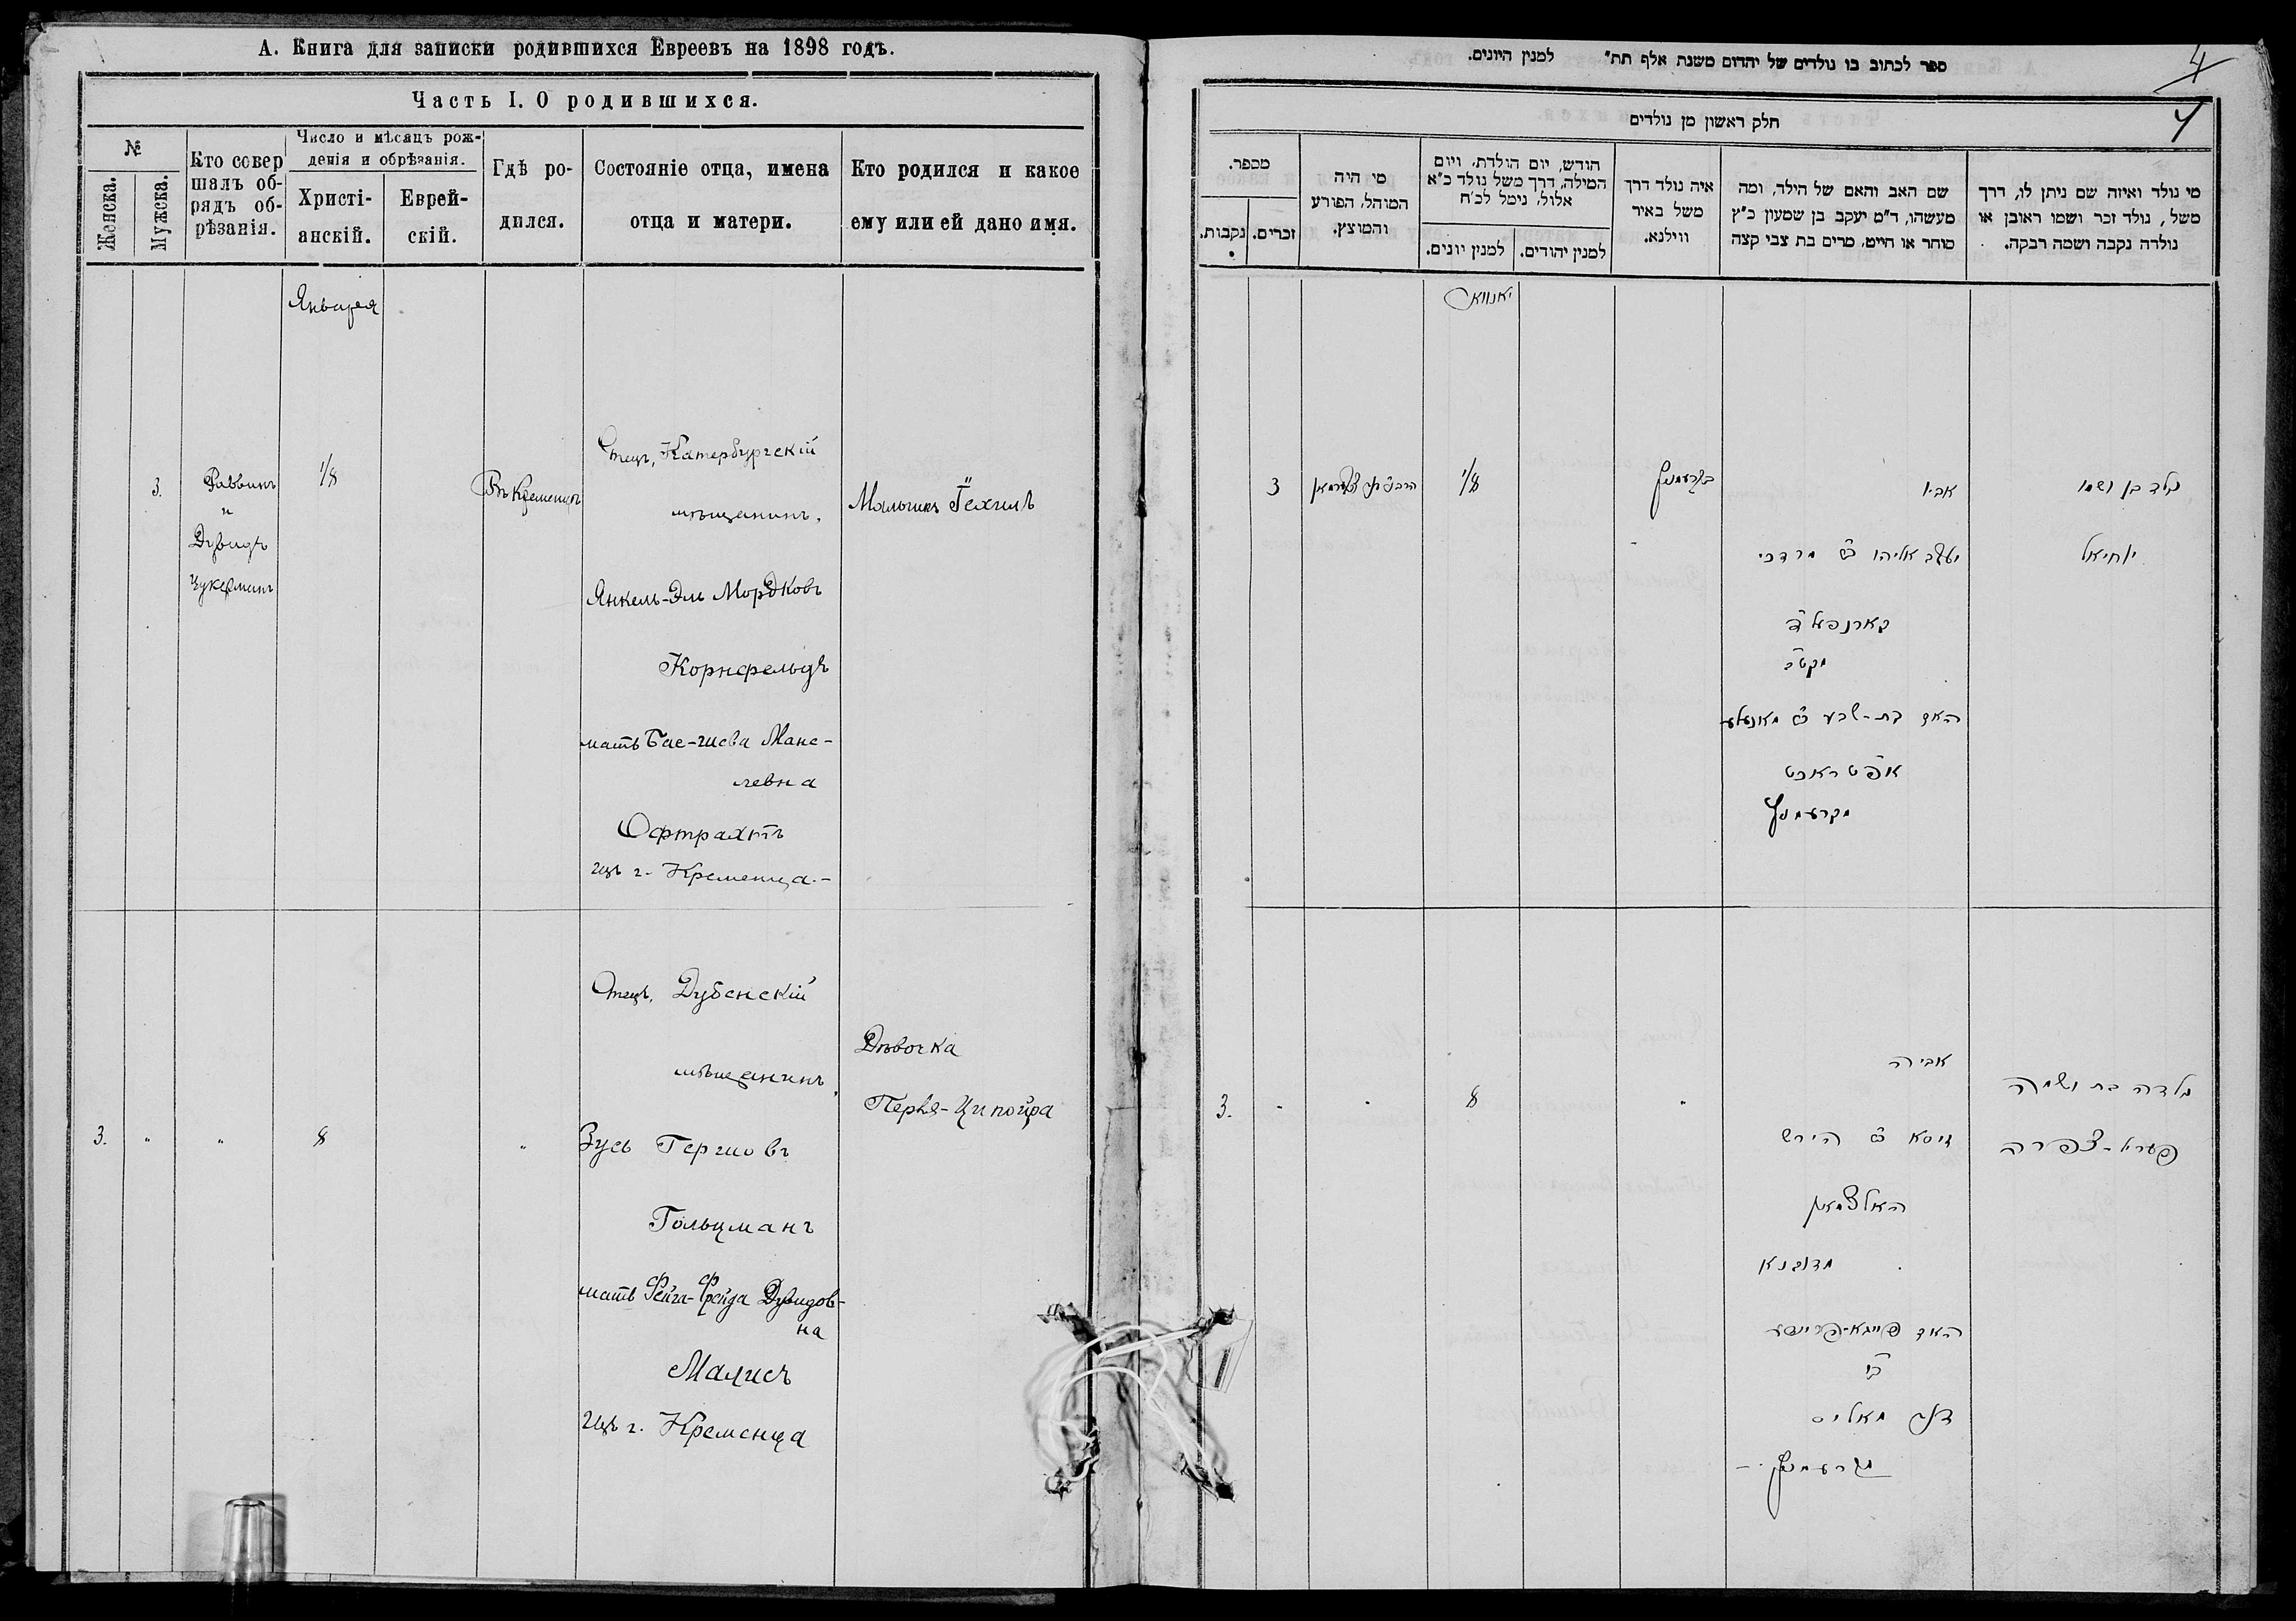 А. Книга для записки родившихся Евреевъ на 1898 годъ.
Часть I. О родившихся.
№
Женска.
Мужска.
Кто совер
шалъ об-
рядъ об-
рѣзанія.
Число и мѣсяцъ рож-
денія и обрѣзанія.
Христі-
анскій.
Еврей-
скій.
Гдѣ ро-
дился.
Состояніе отца, имена
отца и матери.
Кто родился и какое
ему или ей дано имя.
Января
3.
Раввинъ
и
Дувидъ
Цукерманъ
1/8
Въ Кременцѣ
Отецъ, Катербургскій
мѣщанинъ,
Янкель-Эль Мордковъ
Корнфельдъ
мать Бас-шева Мане-
левна
Офтрахтъ
изъ г. Кременца.-
Мальчикъ Iехиль
3.
"
"
8
"
Отецъ, Дубенскій
мѣщанинъ,
Зусь Гершовъ
Гольцманъ
мать Фейга-Фрейда Дувидов-
на
Малисъ
изъ г. Кременца
Дѣвочка
Перля-Ципойра
ספר לכתוב בו נולדים של יהדום משנת אלף תת" למנין היונים.
4
4
חלק ראשון מן נולדים
מספר.
נקבות.
זכרים.
מי היה
המוהל, הפורע
והמוצץ.
חודש, יום הולדת, ויום
המילה, דרך משל נולד כ"א
אלול, נימל לכ"ח
למנין יונים.
למנין יהודים.
איה נולד דרך
משל באיר
ווילנא.
שם האב והאם של הילד, ומה
מעשהו, ד"מ יעקב בן שמעון כ"ץ
סוחר או חייט, מרים בת צבי קצה
מי נולד ואיזה שם ניתן לו, דרך
משל, נולד זכר ושמו ראובן או
נולדה נקבה ושמה רבקה.
יאנוואר
3
1/8
בקרעמניץ
אביו
יעקב אליהו ב"ר מרדכי
קארנפעלד
האם בת-שבע ב"ר מאנעלע
אפטראכט
מקרעמניץ
ילד בן ושמו
יחיאל
3.
"
"
8
"
אביה
זיסא ב"ר הירש
האלצמאן
מדובנא
האם פייגא-פריידע
ב"ר
דוד מאליס
מקרעמניץ
ילדה בת ושמה
פערל-צפרה